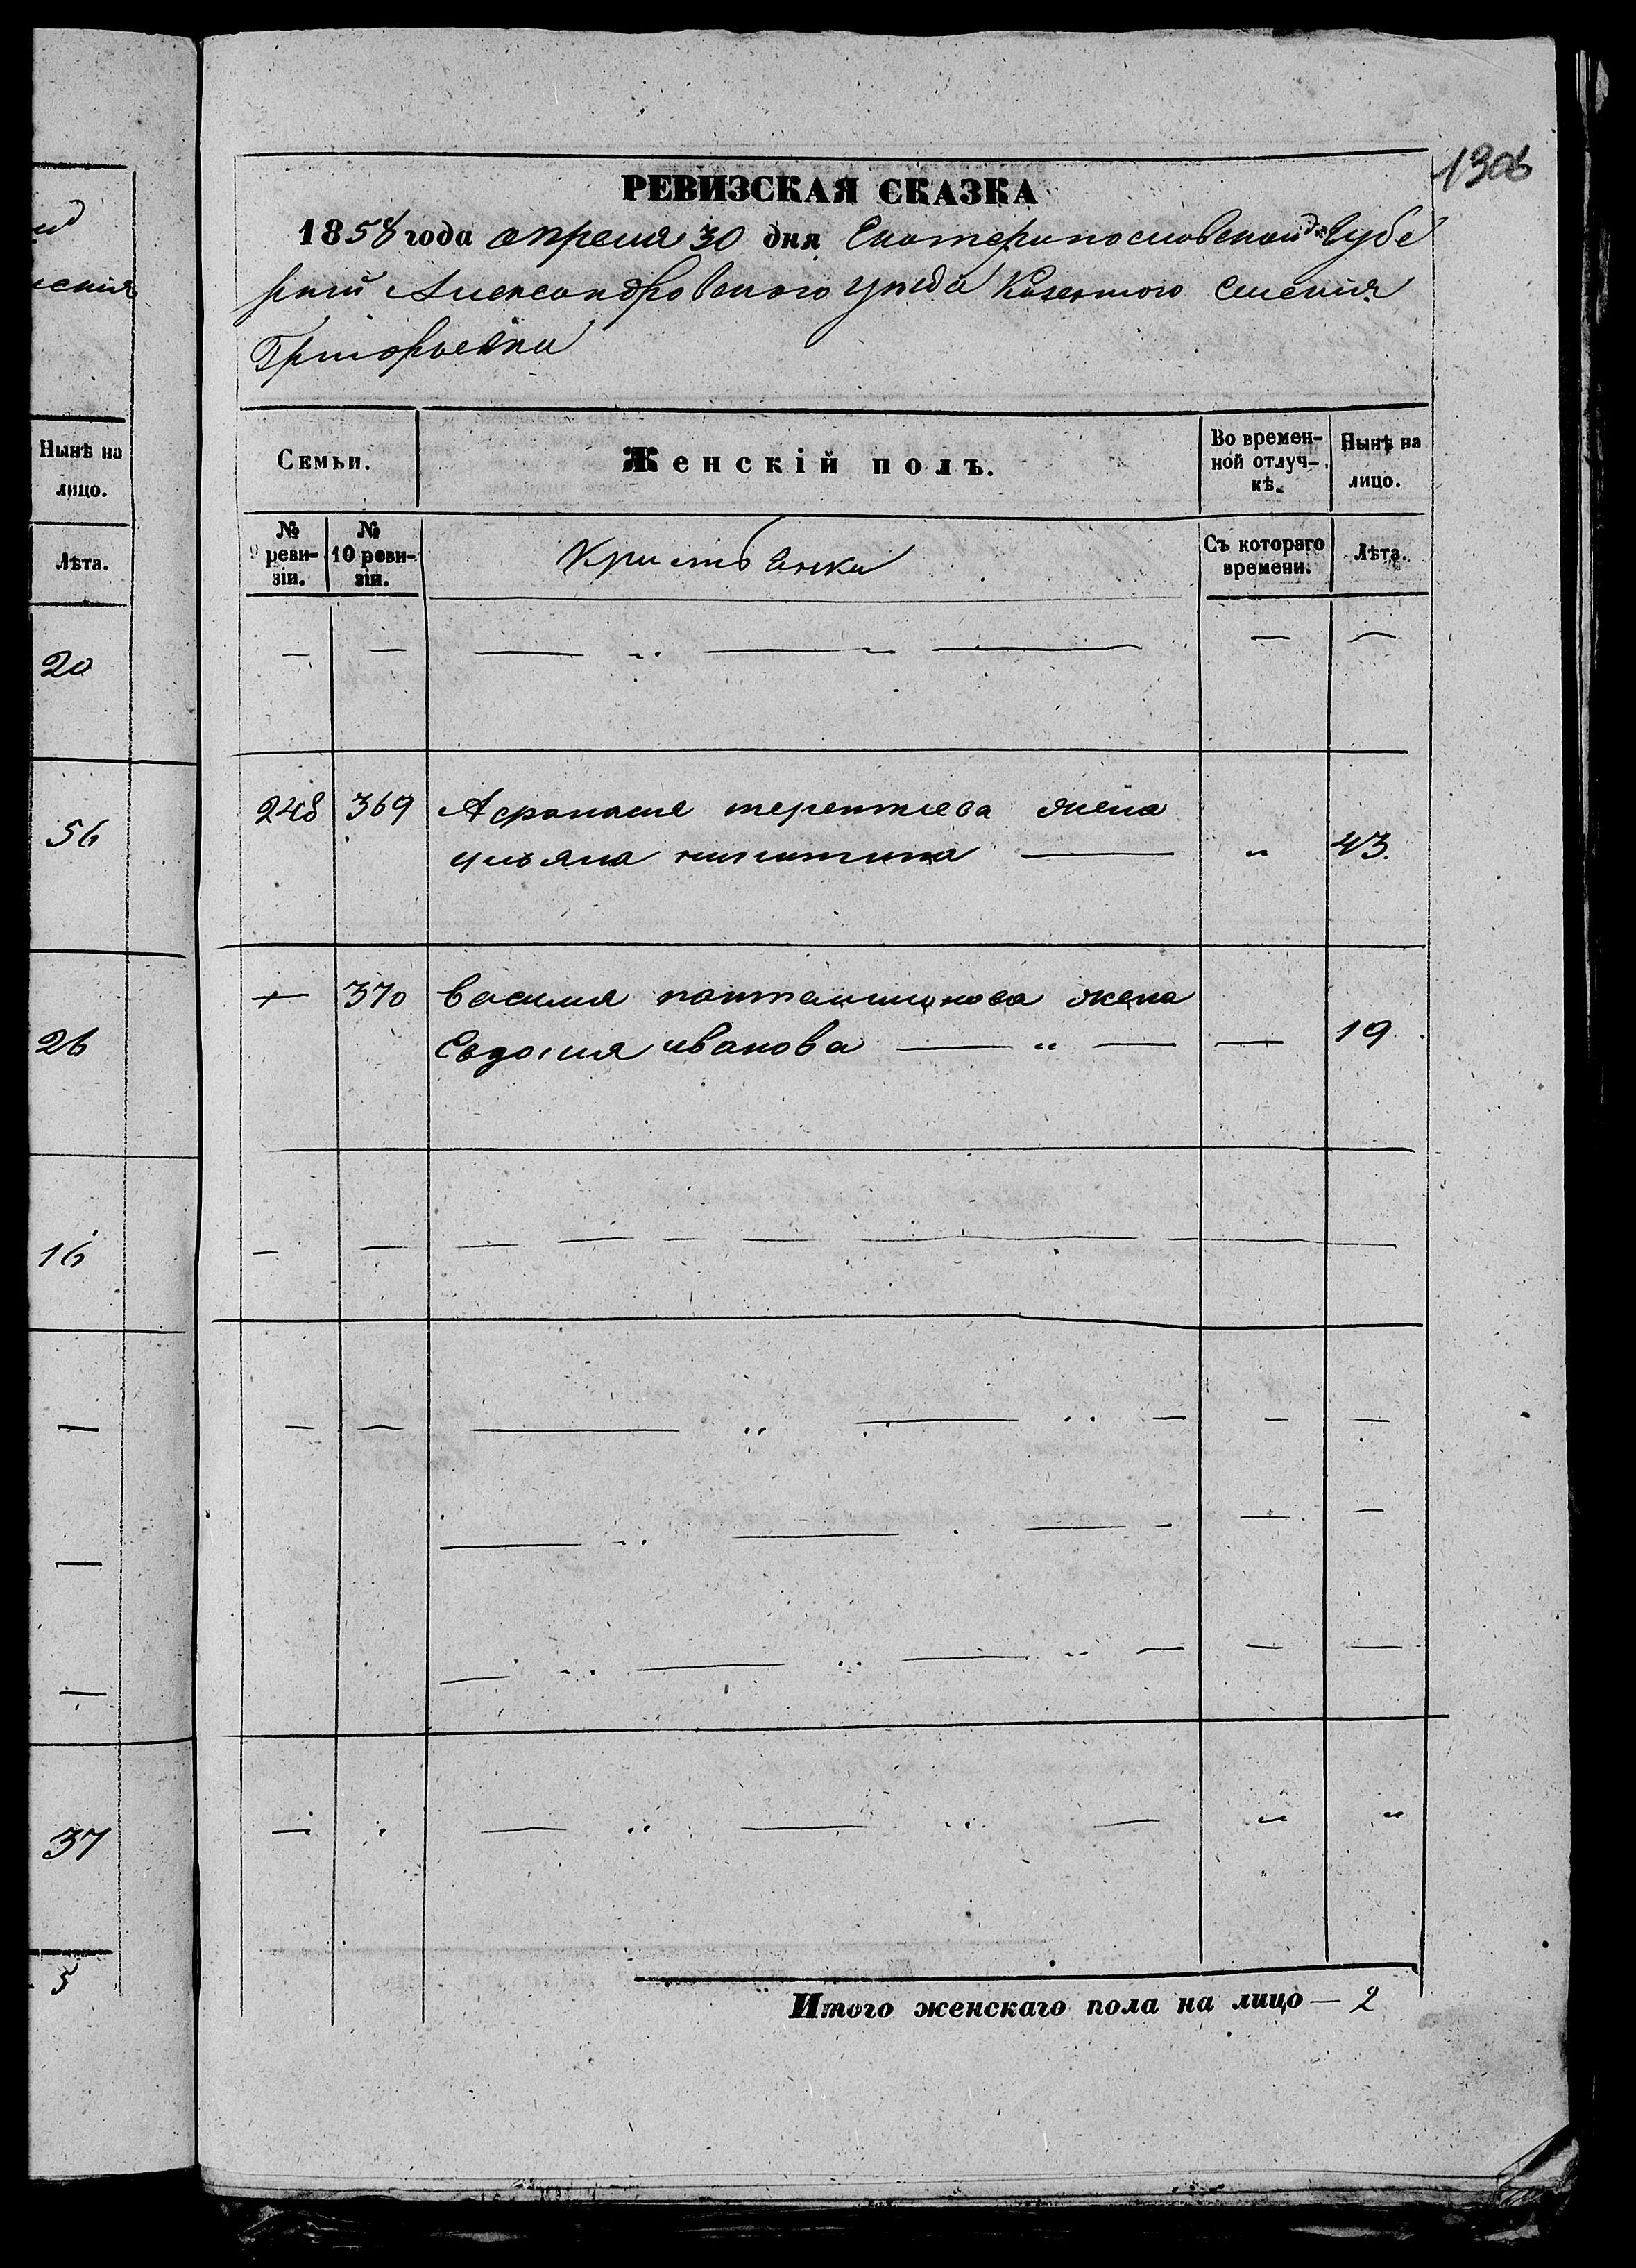 1306
РЕВИЗСКАЯ СКАЗКА
1858 года апреля 30 дня Екатеринославской Губе
рнии Александровского уезда Казенного Селения
Григорьевки
Семьи.
Женскій полъ.
Во времен-
ной отлуч-
кѣ.
Нынѣ на
лицо.
№
9 реви-
зіи.
№
10 реви-
зіи.
Кристьенки
Съ котораго
времени.
Лѣта.
248 369 Афанасия терентиева жена
ульяна никитина " 43.
370 василия пантелимонова жена
Евдокия иванова " 19
Итого женскаго пола на лицо — 2
Нынѣ на
лицо.
Лѣта.
20
56
26
16
37
5